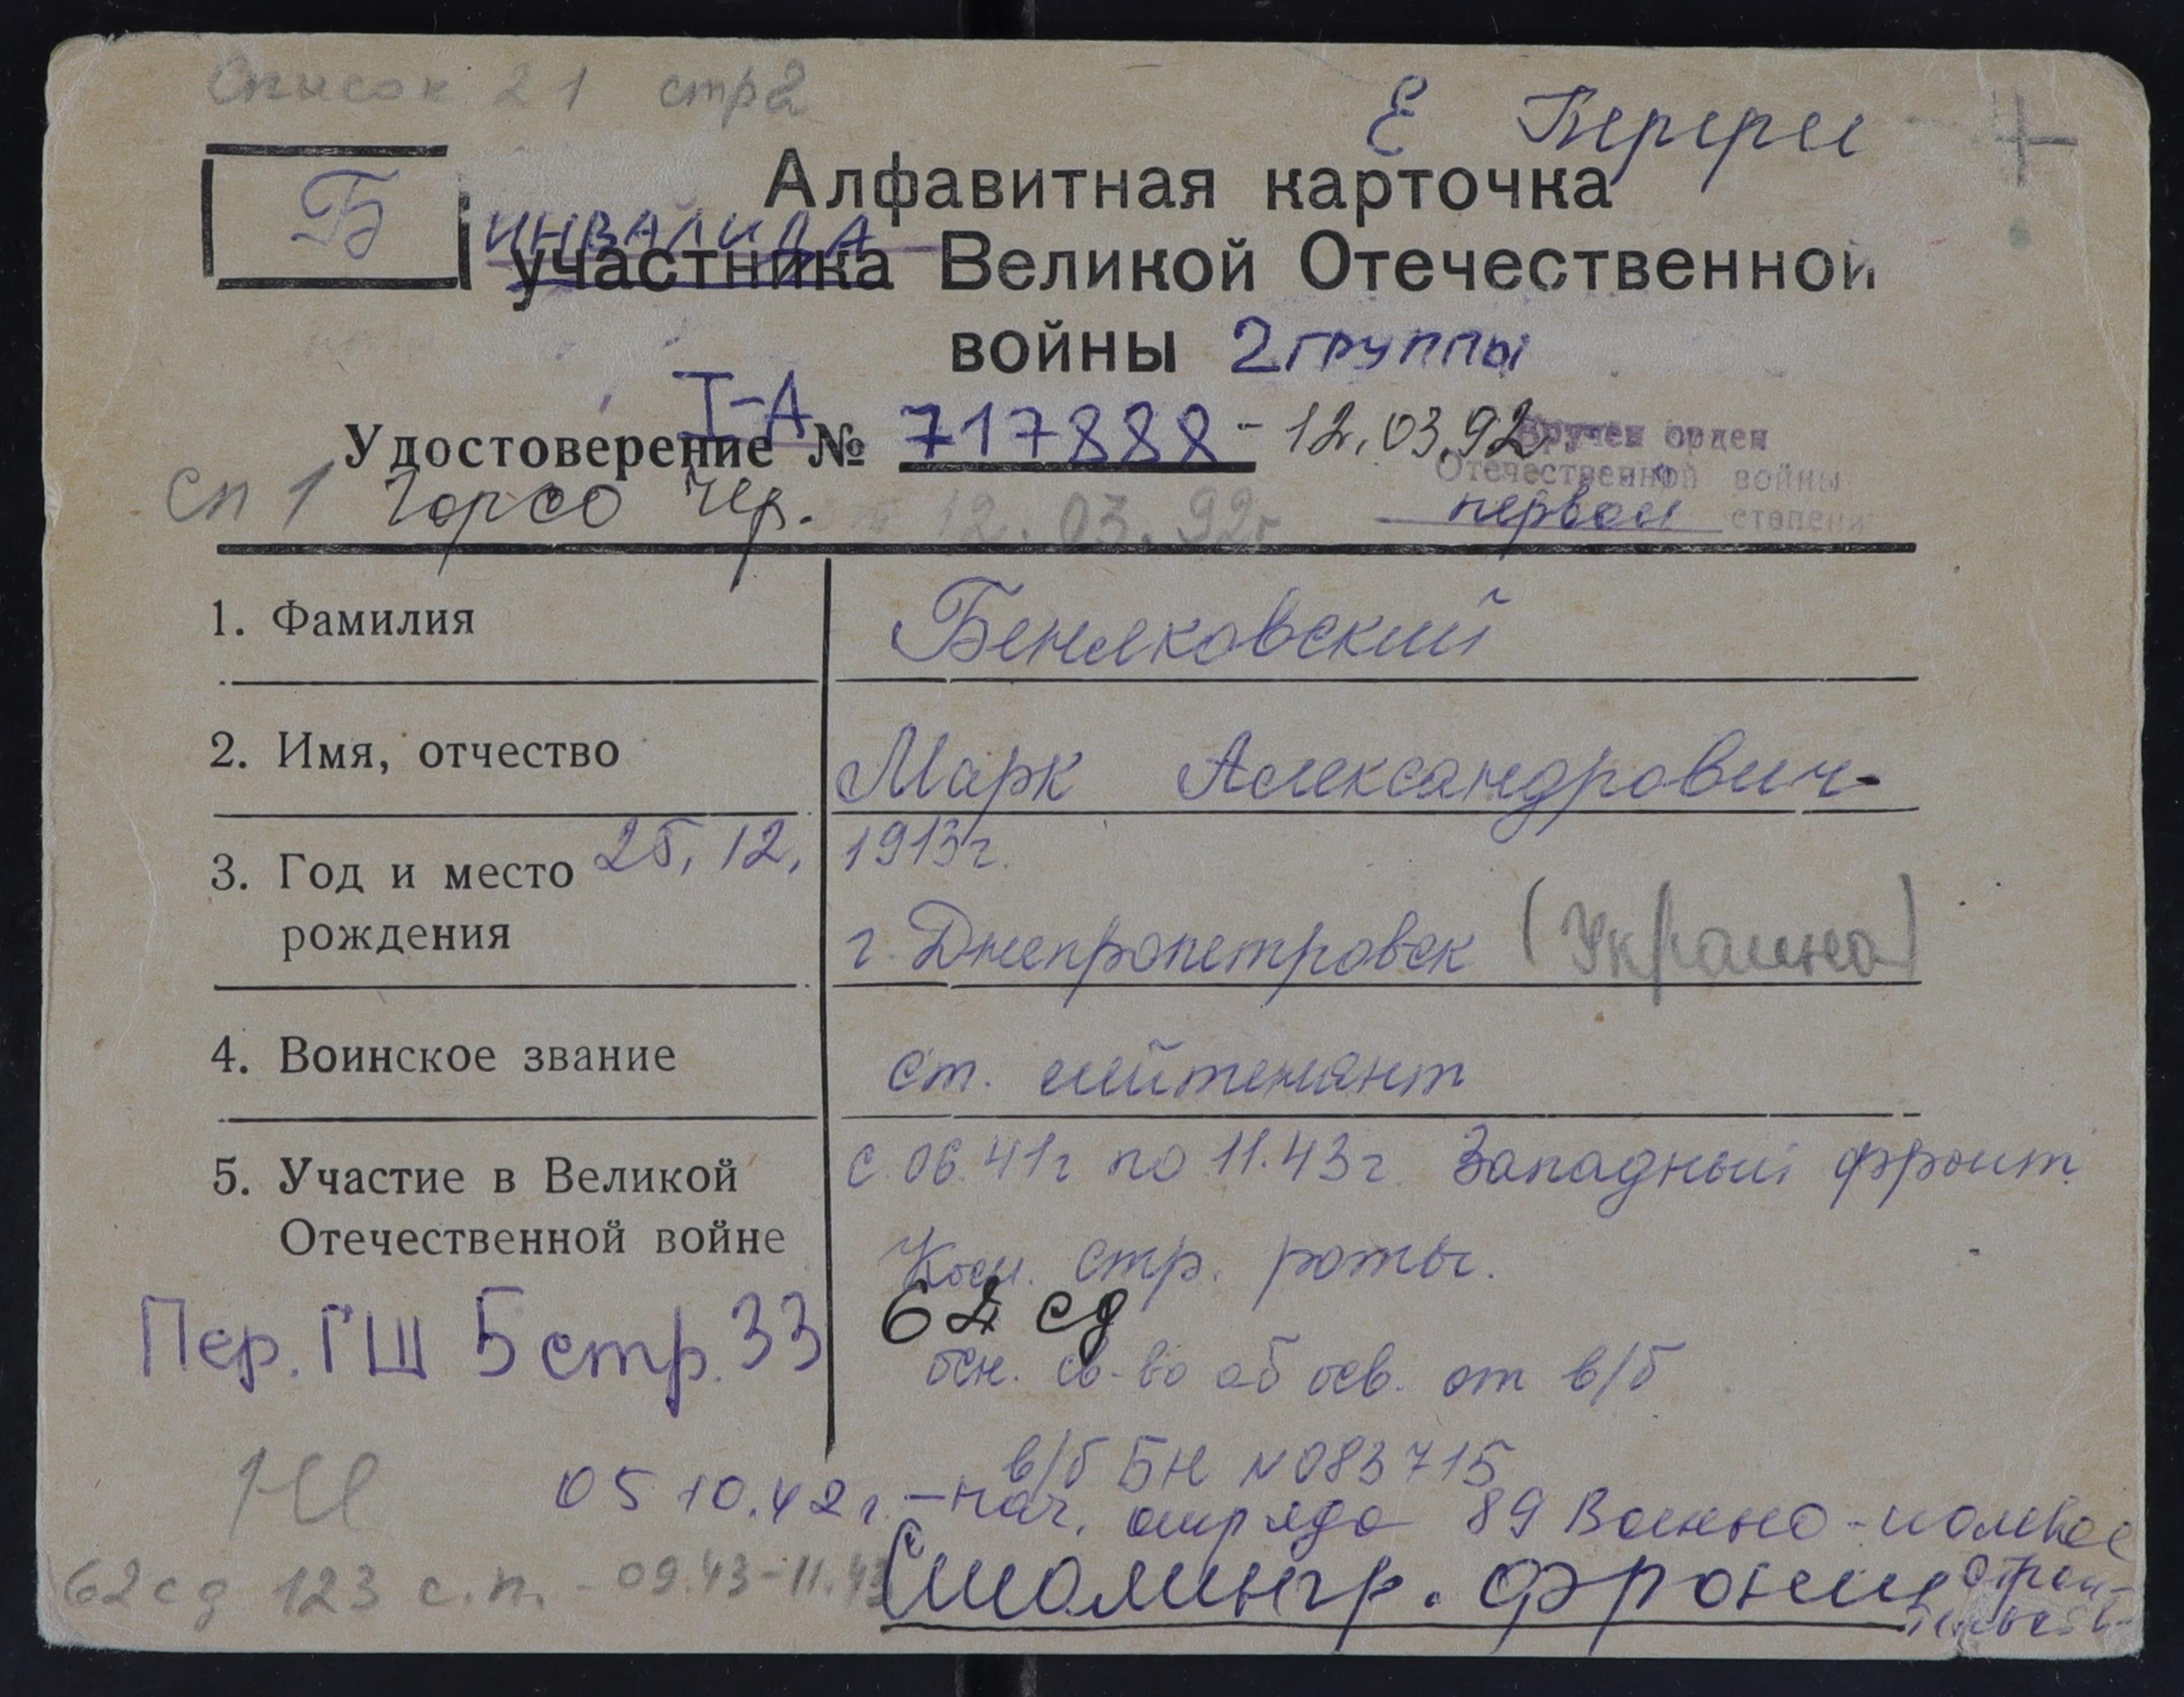 Список 21 стр 2
Е
Б
Алфавитная карточка
инвалида
участника Великой Отечественной
войны 2 группы
I-А
Удостоверение № 717888 - 12.03.92
Вручен орден
Отечественной войны
первой степени
сп 1 Горсо Чер. 12.03.92г
1. Фамилия Беняковский
2. Имя, отчество Марк Александрович
3. Год и место 25.12. 1913г.
рождения г. Днепропетровск (Украина)
4. Воинское звание ст. лейтенант
5. Участие в Великой с 06.41г по 11.43г. Западный фронт
Отечественной войне Ком. стр. роты.
Пер. ГШ Б стр. 33 62 сд
осн. св-во об осв. от в/б
в/б БН №083715
05 10.42г. - нач. отряда 89 Военно-полевое
62 сд 123 с.п. - 09.43-11.43 Сталингр. фронт